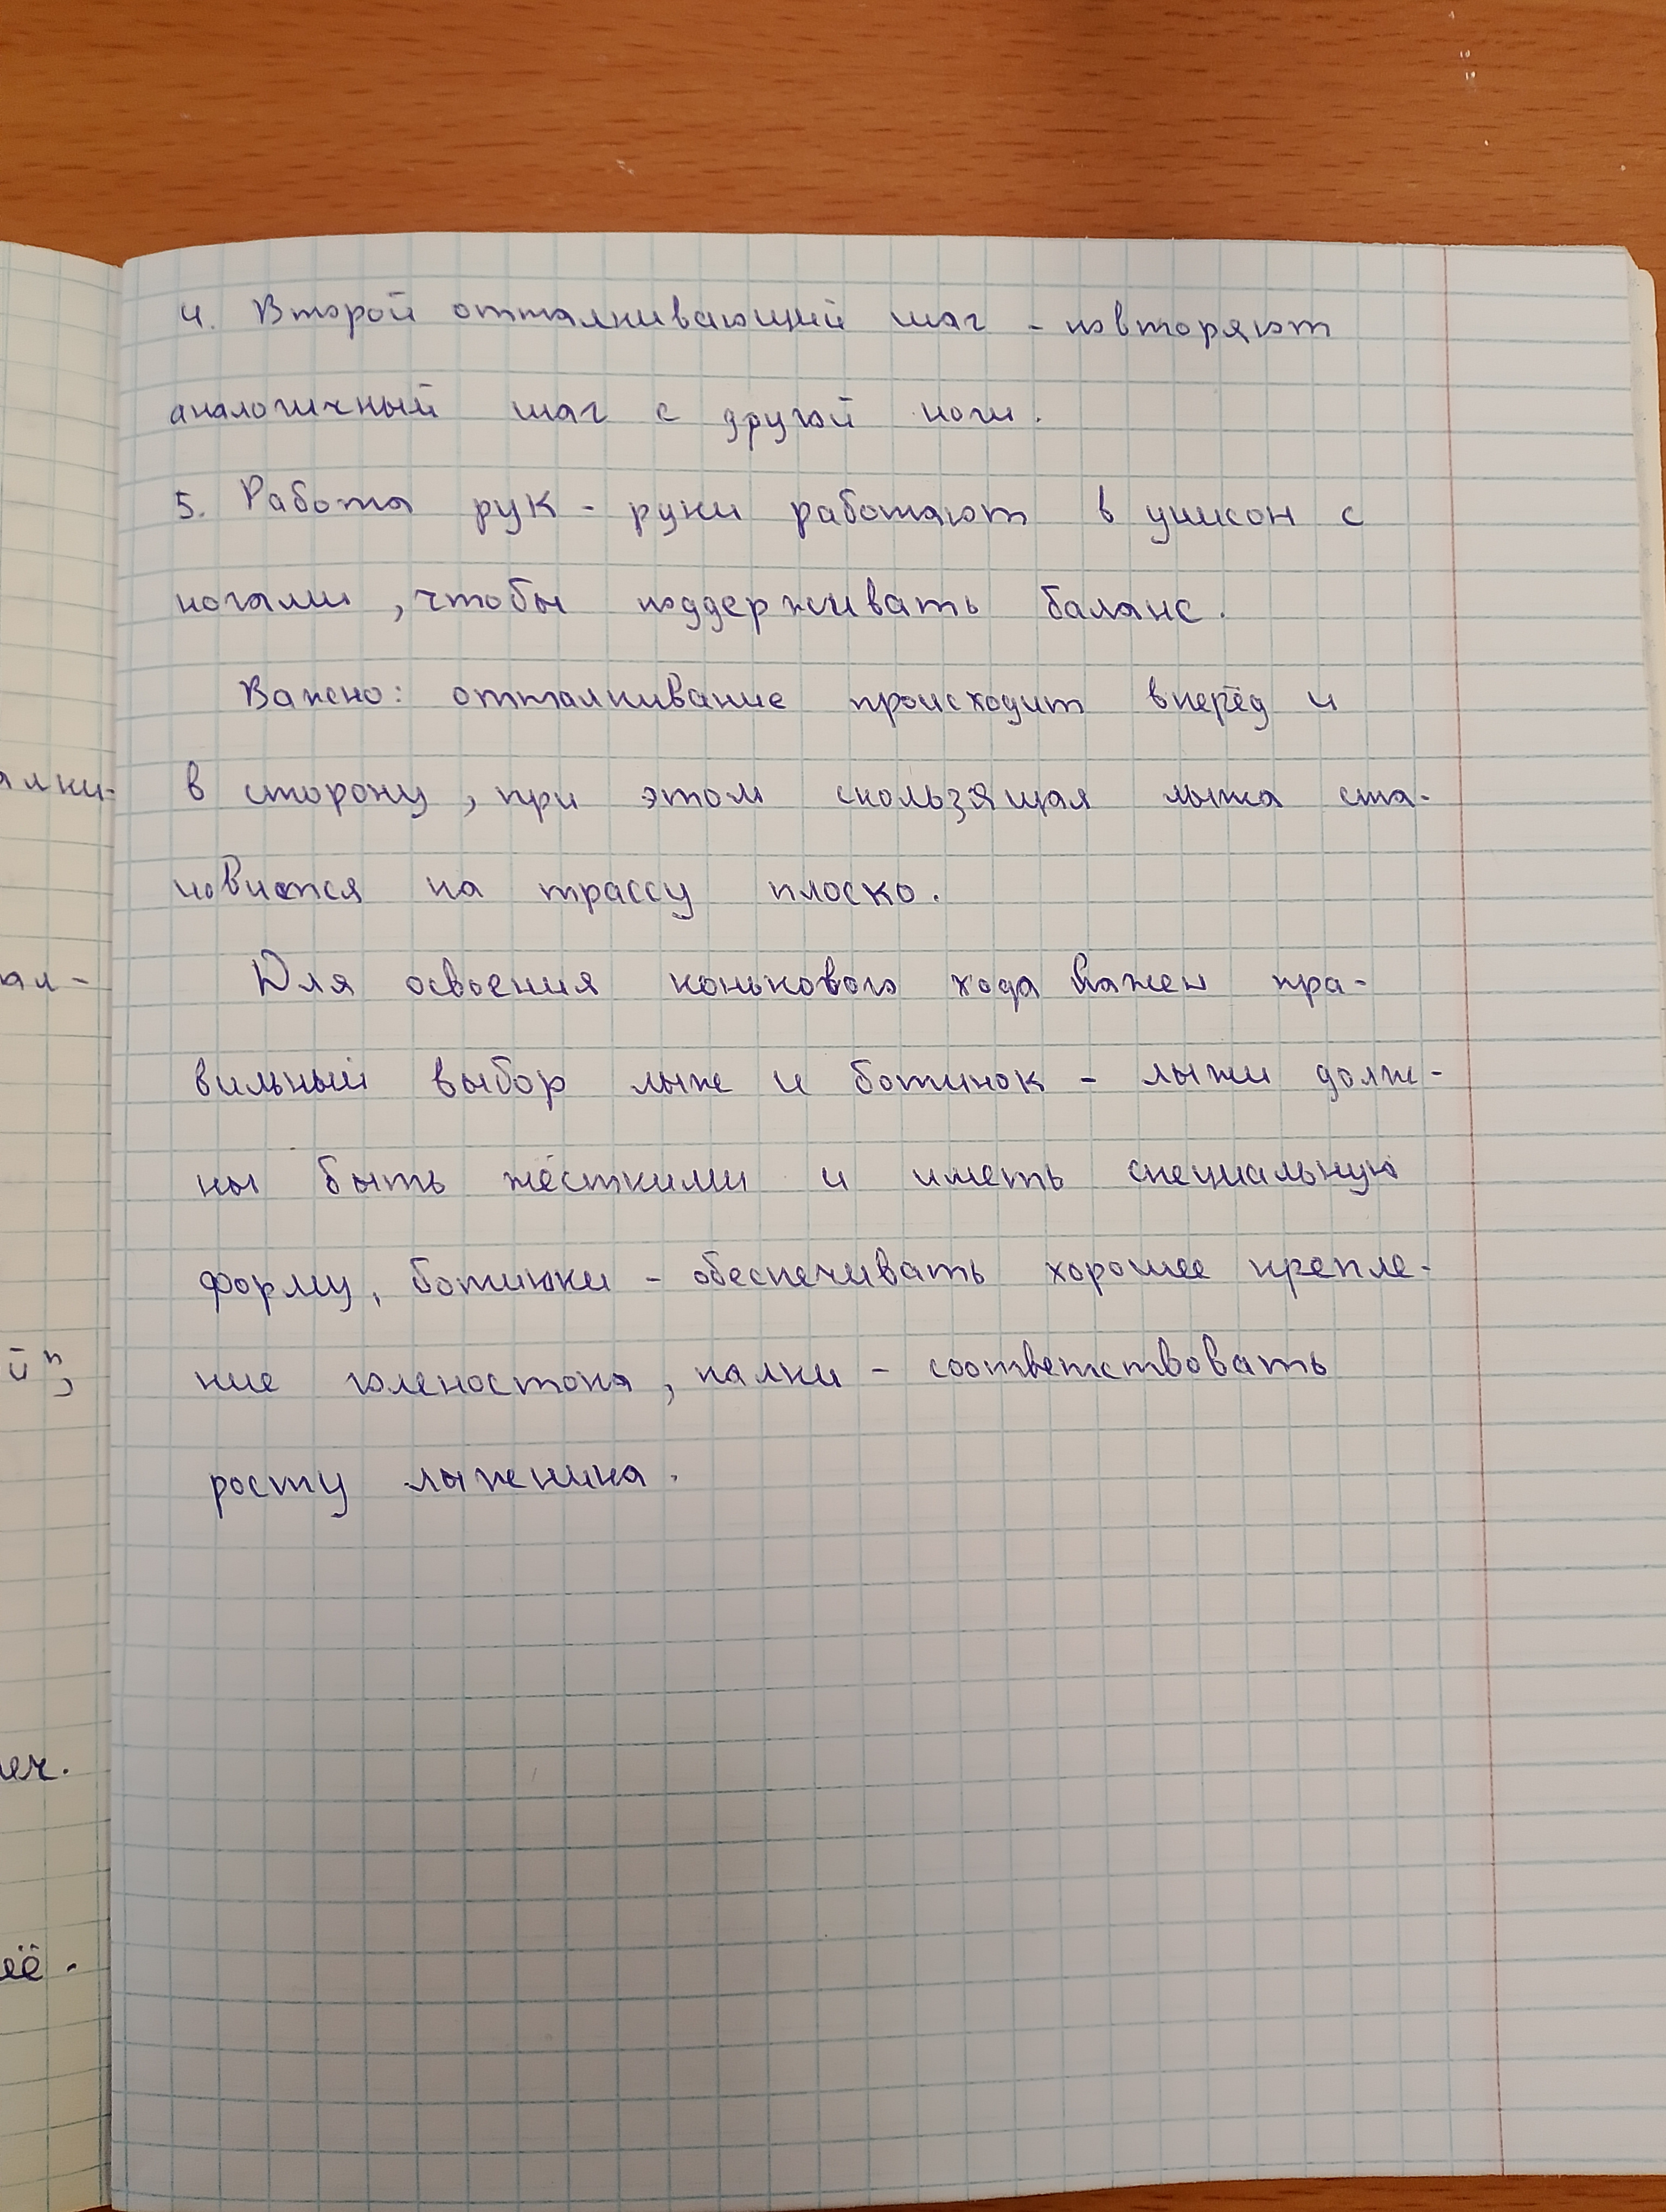 4. Второй отталкивающий шаг - повторяют
аналогичный шаг с другой ноги.
5. Работа рук - руки работают в унисон с
ногами, чтобы поддерживать баланс.
Важно: отталкивание происходит вперёд и
в сторону, при этом скользящая лыжа ста-
новится на трассу плоско.
Для освоения конькового хода важен пра-
вильный выбор лыж и ботинок - лыжи долж-
ны быть жёсткими и иметь специальную
форму, ботинки - обеспечивать хорошее крепле-
ние голеностопа, палки - соответствовать
росту лыжника.